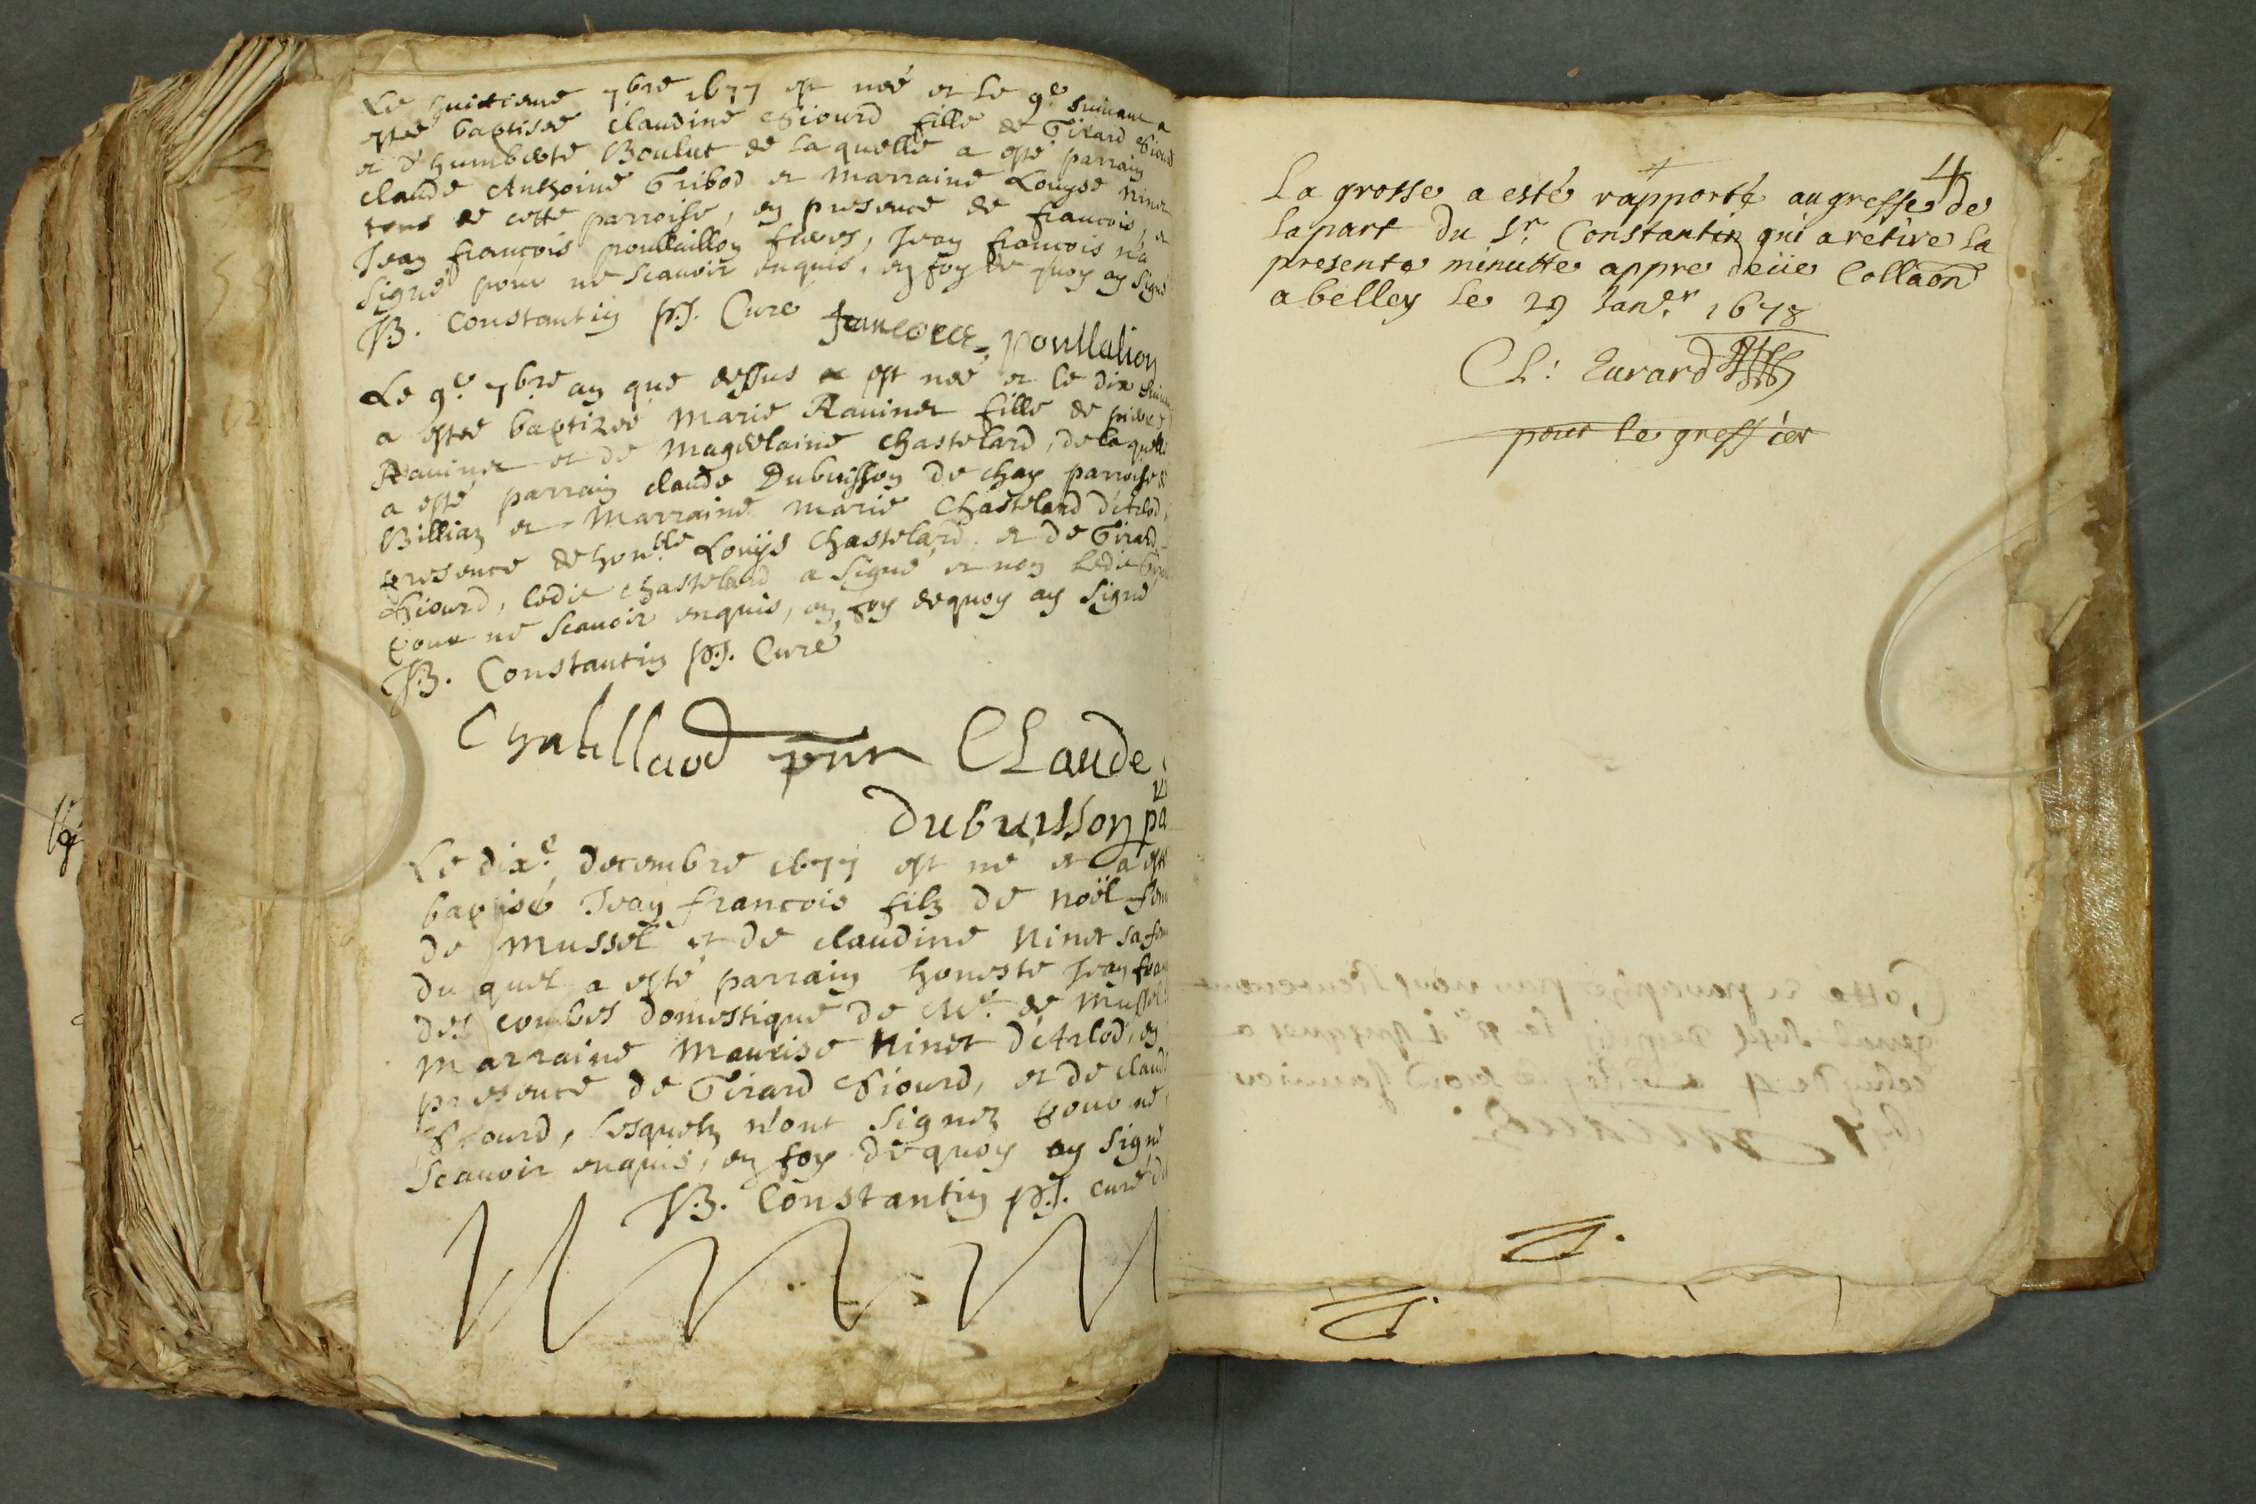 Le huictieme 7bre 1677 est née et le 9e suivant a
estée baptisée claudine Chiourd fille de Girard Chiourd
et d'humberte Boulut de laquelle a esté parrain
claude Anthoine Tribod et marraine Louyse Ninet
tous de cette parroisse, en presence de francois, et
Jean francois poullaillon freres, Jean francois n'a
signé pour ne scavoir enquis, en foy de quoy ay signé
B. Constantin ptre. Curé francois poullalion
Le 9e 7bre an que dessus est née et le dix suivant
a estée baptizée Marie Ravinet fille de
Ravinet et de Magdelaine Chastelard, de laquelle
a esté parrain claude Dubuisson de chay parroisse de
Billiaz et Marraine marie Chastelard d'Arlod,
presence de honble Louys Chastelard et de Girard
Chiourd, ledit chastelard a signé et non ledit
pour ne scavoir enquis, en foy dequoy ay signé
B. Constantin ptre. Curé
Claude
dubuisson pa
Le dixe decembre 1677 est né et a esté
baptisé Jean francois filz de Noël
de Mussel et de claudine Ninet sa fem
du quel a esté parrain honeste Jean fran
des combes domestique de Mr. de Mussel
marraine Maurise Ninet d'Arlod, en
presence de Girard Chiourd, et de claude
Chiourd, lesquelz n'ont signez pour ne
scavoir enquis, en foy dequoy ay signé
B. Constantin ptre. curé d
4
La grosse a esté rapporté au greffe de
la part du Sr. Constantin qui a retire la
presente minutte appre deüe Collaon
a belley le 29 Janer 1678
Cl: Eurard
pour le greffier